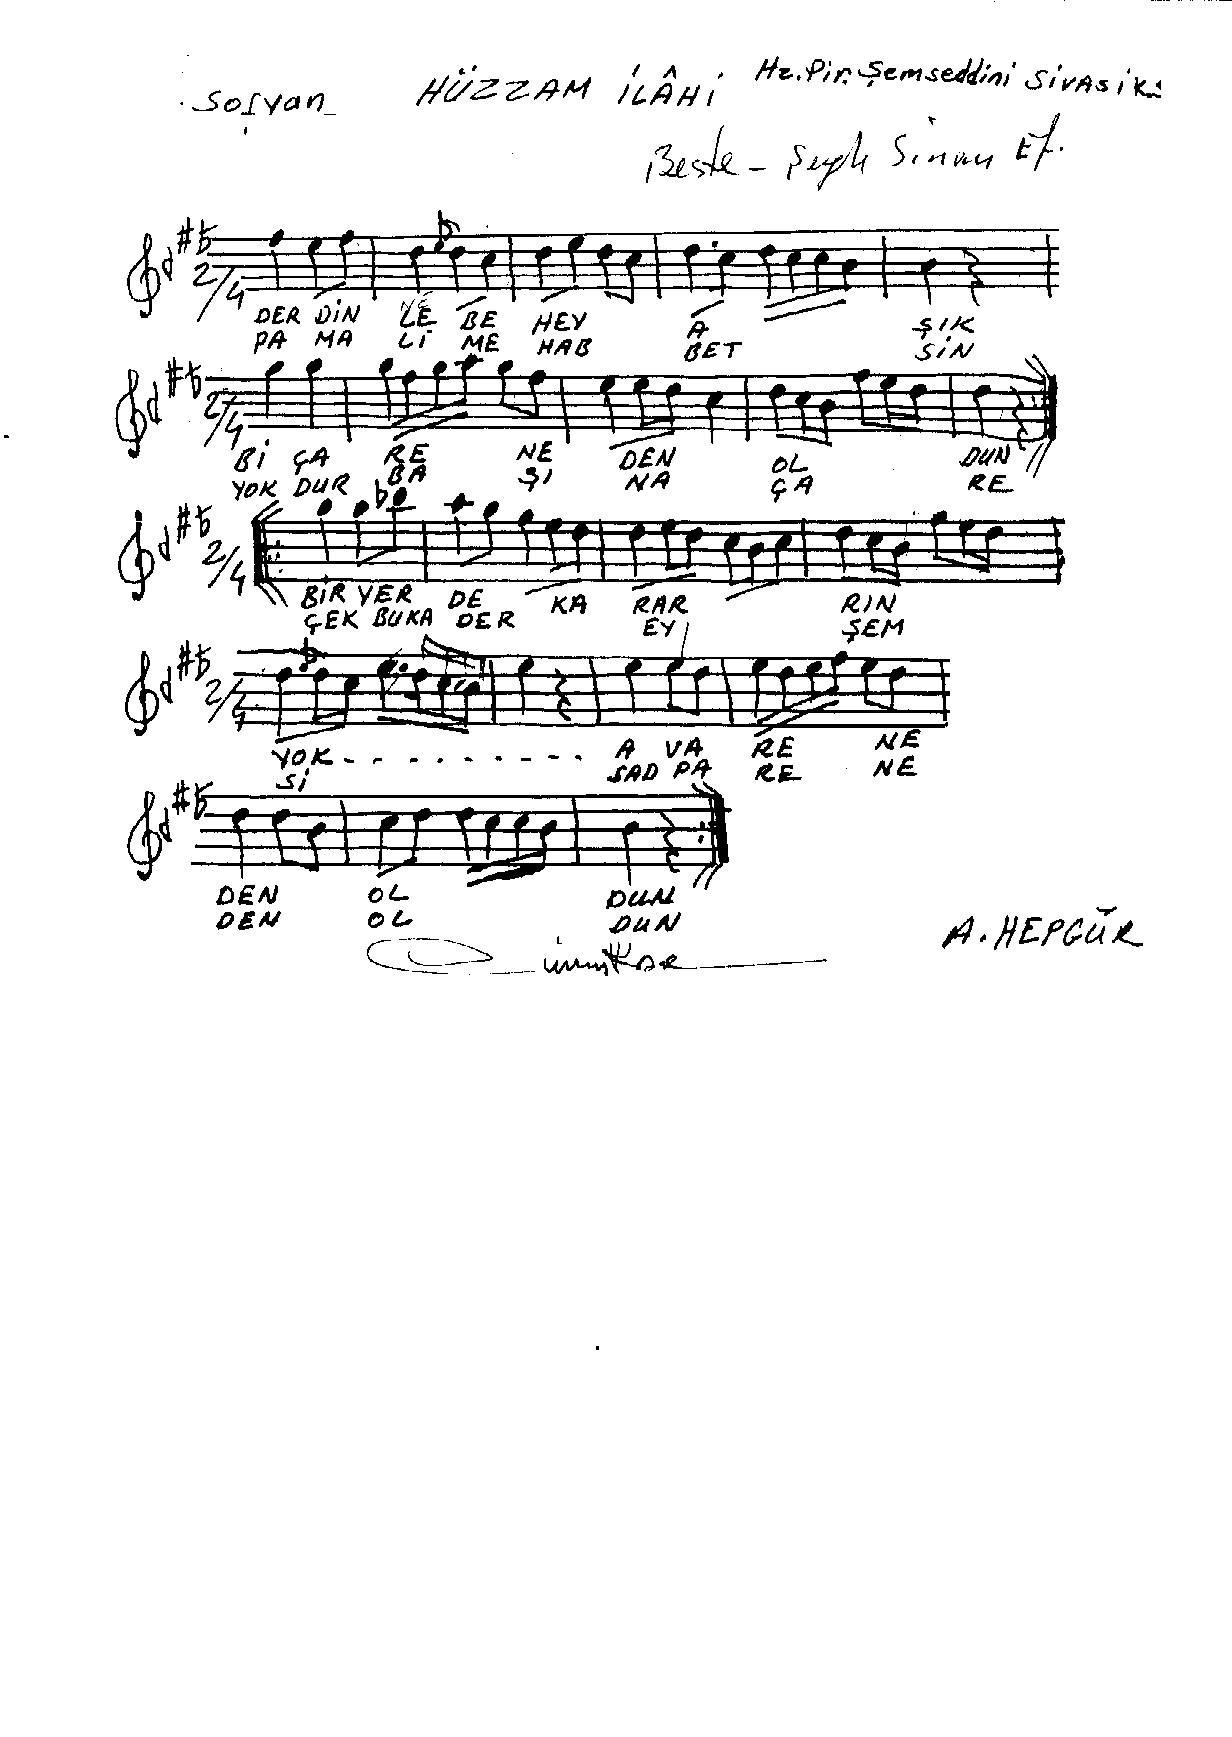 Sofyan HÜZZAM İLÂHİ Hz. Pir. Şemseddini SİVASİ K.
Beste - Şeyh Sinan Ef.
2/4
DER DİN LE BE HEY A ŞIK
PA MA Lİ ME HAB BET SİN
2/4
Bİ ÇA RE NE DEN OL DUN
YOK DUR BA ŞI NA ÇA RE
2/4
BİR YER DE KA RAR RIN
ÇEK BU KA DER EY ŞEM
2/4
YOK - - - - - - - - - A VA RE NE
Sİ SAD PA RE NE
DEN OL DUN
DEN OL DUN
A. HEPGÜR